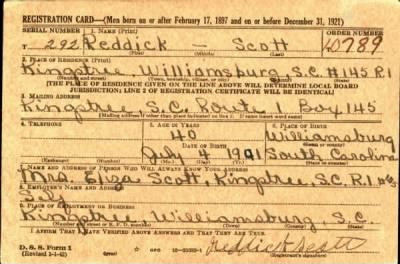 REGISTRATION CARD—(Men born on or after February 17, 1897 and on or before December 31, 1921)
SERIAL NUMBER 1. NAME (Print) ORDER NUMBER
T 292 Reddick — Scott 10789
2. PLACE OF RESIDENCE (Print)
Kingstree Williamsburg S.C. #145 R1
(Number and street) (Town, township, village, or city) (County) (State)
[THE PLACE OF RESIDENCE GIVEN ON THE LINE ABOVE WILL DETERMINE LOCAL BOARD
JURISDICTION; LINE 2 OF REGISTRATION CERTIFICATE WILL BE IDENTICAL]
3. MAILING ADDRESS
Kingstree, S.C. Route 1 Box 145
[Mailing address if other than place indicated on line 2. If same insert word same]
4. TELEPHONE 5. AGE IN YEARS 6. PLACE OF BIRTH
40 Williamsburg
DATE OF BIRTH (Town or county)
July 4 1901 South Carolina
(Exchange) (Number) (Mo.) (Day) (Yr.) (State or country)
7. NAME AND ADDRESS OF PERSON WHO WILL ALWAYS KNOW YOUR ADDRESS
Mrs. Eliza Scott, Kingstree, S.C. R.1
8. EMPLOYER'S NAME AND ADDRESS
Self
9. PLACE OF EMPLOYMENT OR BUSINESS
Kingstree, Williamsburg, S.C.
(Number and street or R. F. D. number) (Town) (County) (State)
I AFFIRM THAT I HAVE VERIFIED ABOVE ANSWERS AND THAT THEY ARE TRUE.
D. S. S. Form 1 GPO Reddick Scott
(Revised 1-1-42) (over) (Registrant's signature)